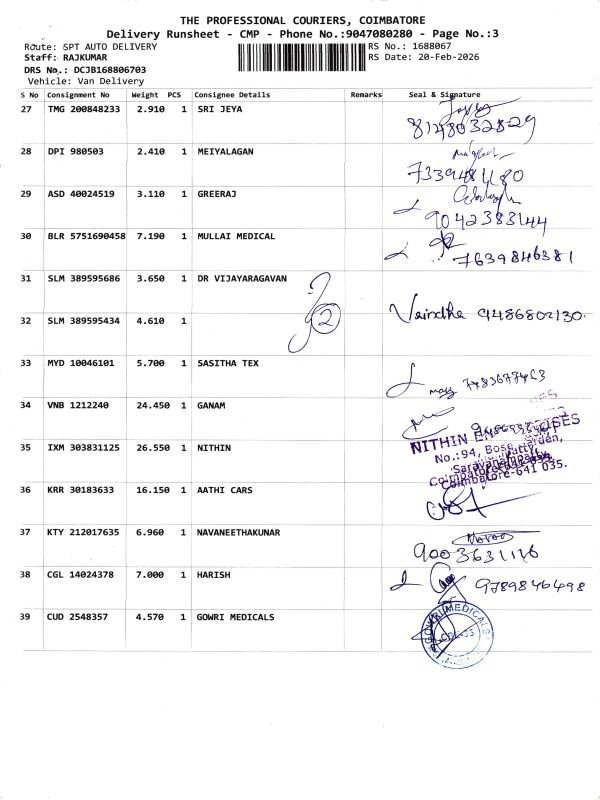 THE PROFESSIONAL COURIERS, COIMBATORE
Delivery Runsheet - CMP - Phone No.:9047080280 - Page No.:3
Route: SPT AUTO DELIVERY
RS No.: 1688067
Staff: RAJKUMAR
RS Date: 20-Feb-2026
DRS No.: DCJB168806703
Vehicle: Van Delivery
S No Consignment No Weight PCS Consignee Details Remarks Seal & Signature
27 TMG 200848233 2.910 1 SRI JEYA
8148032829
28 DPI 980503 2.410 1 MEIYALAGAN
29 ASD 40024519 3.110 1 GREERAJ
9042383144
30 BLR 5751690458 7.190 1 MULLAI MEDICAL
7639846381
31 SLM 389595686 3.650 1 DR VIJAYARAGAVAN
2
32 SLM 389595434 4.610 1
9486802130
33 MYD 10046101 5.700 1 SASITHA TEX
34 VNB 1212240 24.450 1 GANAM
35 IXM 303831125 26.550 1 NITHIN
NITHIN
No.:94, Bose Garden,
Coimbatore-641 035.
36 KRR 30183633 16.150 1 AATHI CARS
37 KTY 212017635 6.960 1 NAVANEETHAKUNAR
9003631116
38 CGL 14024378 7.000 1 HARISH
9789846498
39 CUD 2548357 4.570 1 GOWRI MEDICALS
GOWRI MEDICALS